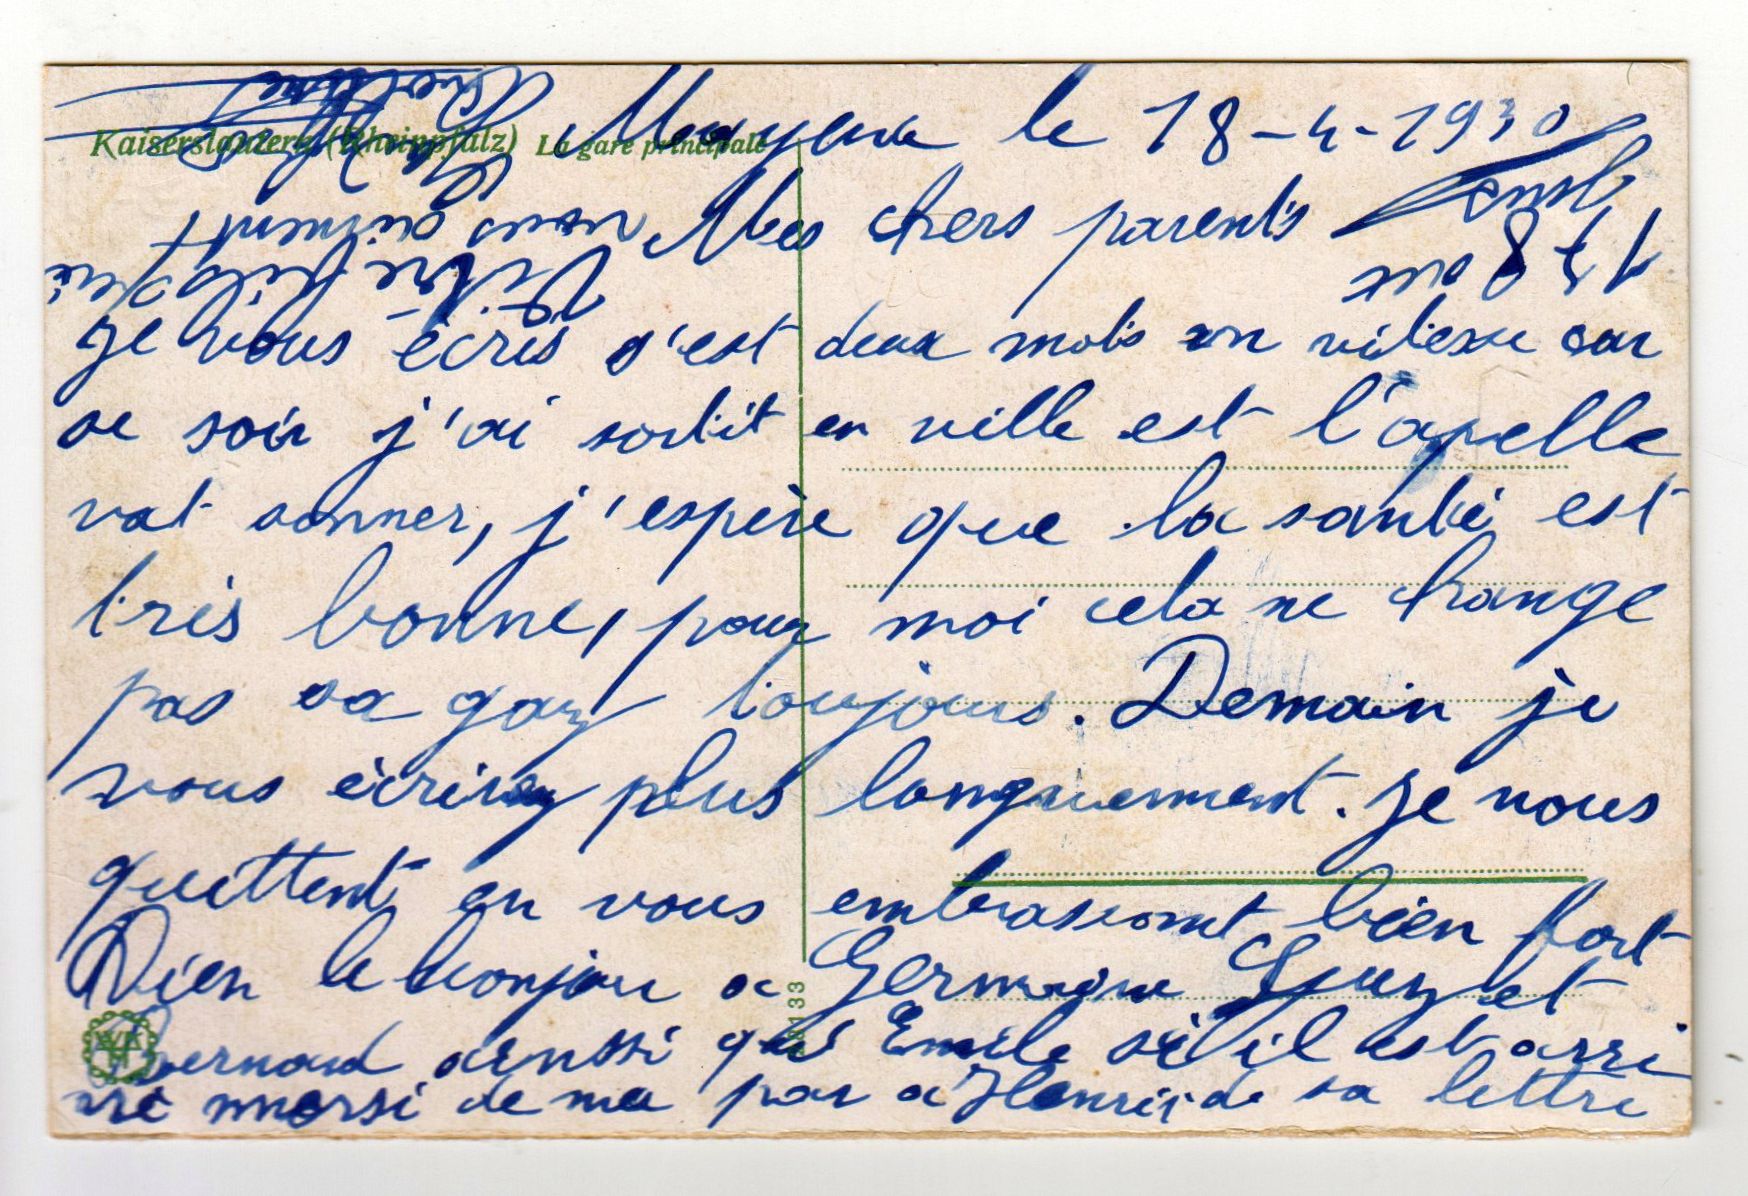 Kaiserslautern (Rheinpfalz) La gare principale
Mayence le 18-4-1930
Mes chers parents
Je vous écris s'est deux mots en vitesse car
se soir j'ai sortit en ville est l'apelle
vat sonner, j'espère que la santé est
très bonne, pour moi cela ne change
pas sa gaz toujours. Demain je
vous écrirez plus longuement. Je vous
quittent en vous embrassant bien fort
Bien le bonjour a Germagne Guy et
Bernard ainssi que Emile si il est arri
vé mersi de ma par a Henri de sa lettre
Votre fils
vous aiment
AVA
133